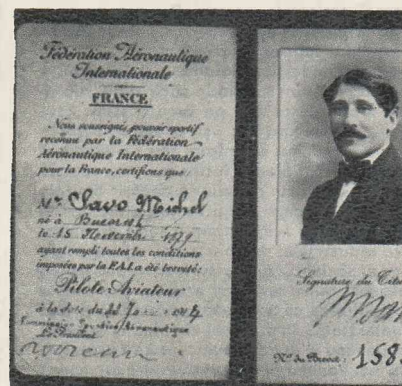 Fédération Aéronautique
Internationale
FRANCE
Nous soussignés, pouvoir sportif
reconnu par la Fédération
Aéronautique Internationale
pour la France, certifions que
Mr Savo Michel
né à Bucarest
le 15 1879
ayant rempli toutes les conditions
imposées par la F.A.I. a été breveté:
Pilote-Aviateur
à la date du
Commission Sportive Aéronautique
Le Président
Signature du Titu
No du Brevet: 158